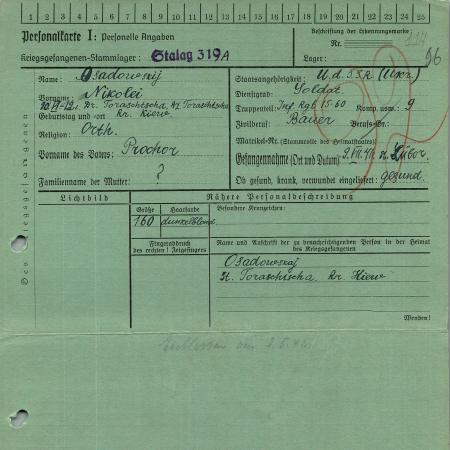 1 2 3 4 5 6 7 8 9 10 11 12 13 14 15 16 17 18 19 20 21 22 23 24 25
Personalkarte I: Personelle Angaben
Beschriftung der Erkennungsmarke
Nr.
Kriegsgefangenen-Stammlager: Stalag 319 A
Lager:
96
Des Kriegsgefangenen
Name: Osadowskij
Vorname: Nikolei
Geburtstag und -ort Kr. Kiew.
Religion: Orth.
Vorname des Vaters: Prochor
Familienname der Mutter: ?
Staatsangehörigkeit: U.d.S.S.R. (Ukr.)
Dienstgrad: Soldat.
Truppenteil: Inf. Rgt. 15-60 Komp. usw.: 9
Zivilberuf: Bauer Berufs-Gr.:
Matrikel-Nr. (Stammrolle des Heimatstaates)
Gefangennahme (Ort und Datum): 9.VII.41.
Ob gesund, krank, verwundet eingeliefert: gesund.
Lichtbild
Nähere Personalbeschreibung
Größe
Haarfarbe
Besondere Kennzeichen:
160
dunkelblond
Fingerabdruck
des rechten ! Zeigefingers
Name und Anschrift der zu benachrichtigenden Person in der Heimat
des Kriegsgefangenen
Osadowskij
st. Toraschischa. Kr. Kiew
Wenden!